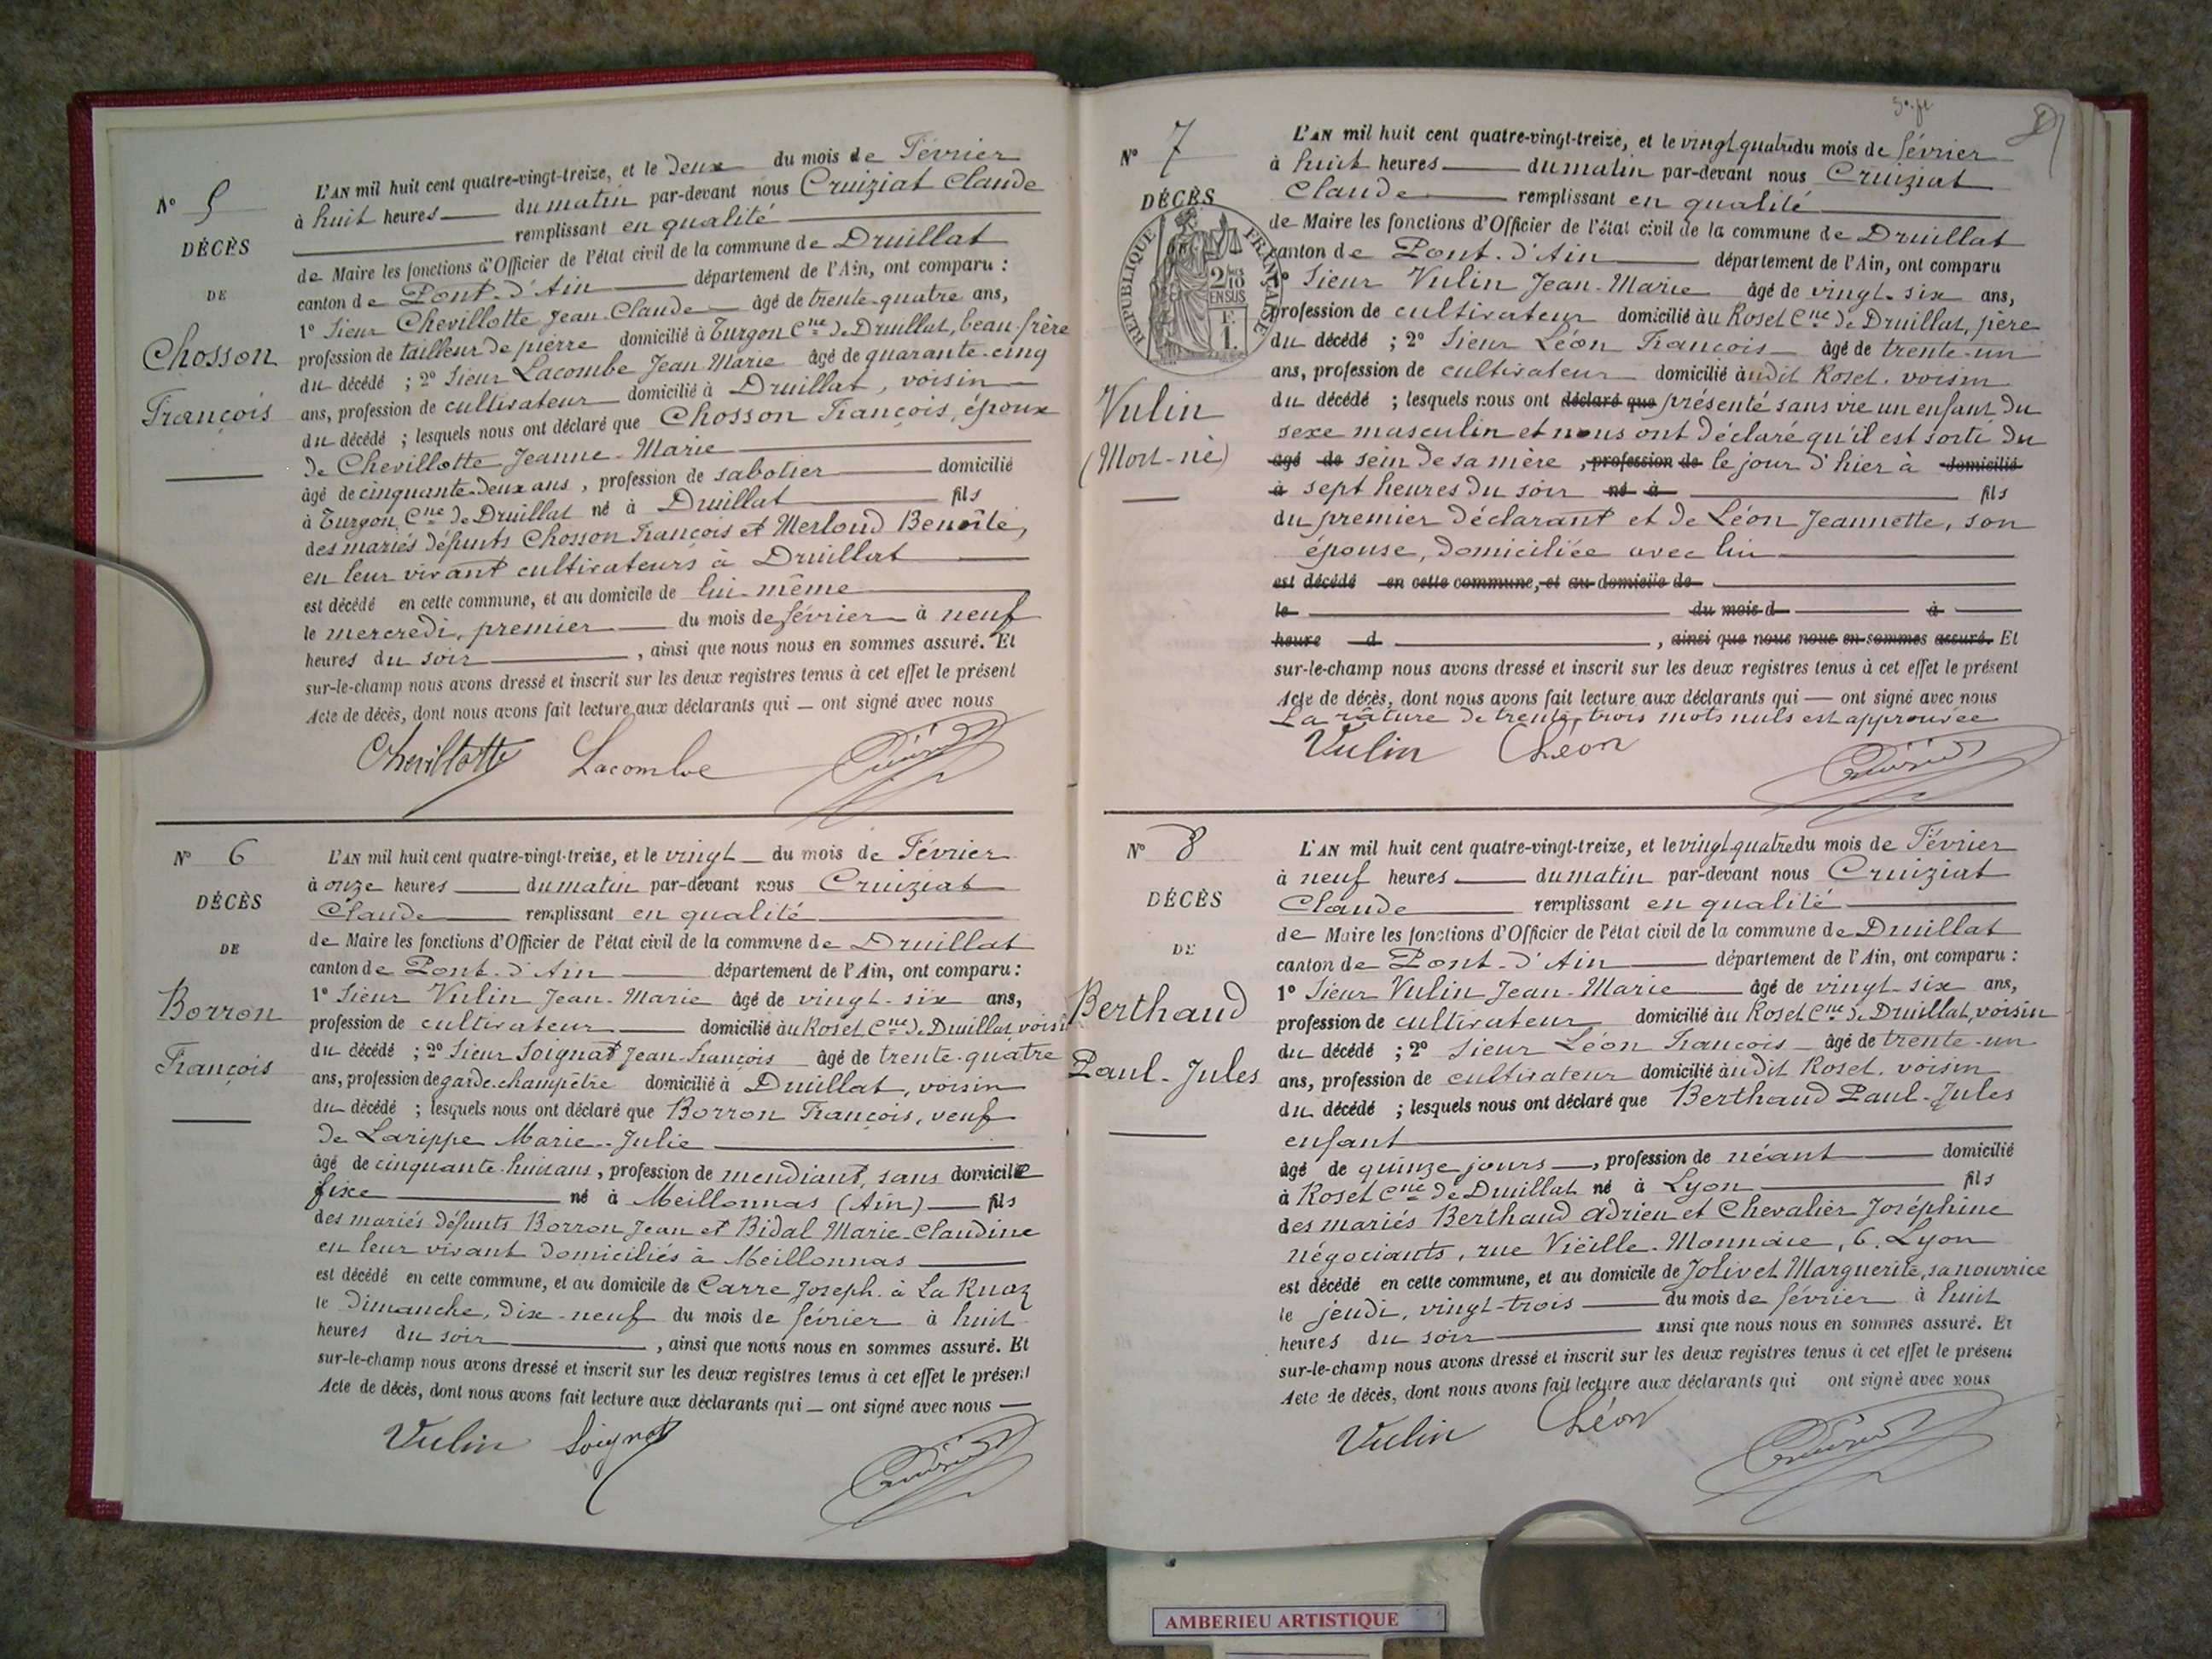 N° 5
DÉCÈS
DE
Chosson
François
L'AN mil huit cent quatre-vingt-treize, et le Deux du mois de Février
à huit heures du matin par-devant nous Cruiziat Claude
remplissant en qualité
de Maire les fonctions d'Officier de l'état civil de la commune de Druillat
canton de Pont-d'Ain département de l'Ain, ont comparu :
1° Sieur Chevillotte Jean-Claude âgé de trente-quatre ans,
profession de tailleur de pierre domicilié à Turgon Cne de Druillat, beau-frère
du décédé ; 2° Sieur Lacombe Jean Marie âgé de quarante-cinq
ans, profession de cultivateur domicilié à Druillat, voisin
du décédé ; lesquels nous ont déclaré que Chosson François, époux
de Chevillotte Jeanne-Marie
âgé de cinquante-deux ans, profession de sabotier domicilié
à Turgon, Cne de Druillat né à Druillat fils
des mariés défunts Chosson François et Merloud Benoîte,
en leur vivant cultivateurs à Druillat
est décédé en cette commune, et au domicile de lui-même
le mercredi, premier du mois de février à neuf
heures du soir, ainsi que nous nous en sommes assuré. Et
sur-le-champ nous avons dressé et inscrit sur les deux registres tenus à cet effet le présent
Acte de décès, dont nous avons fait lecture aux déclarants qui ont signé avec nous
Chevillotte Lacombe
N° 6
DÉCÈS
DE
Borron
François
L'AN mil huit cent quatre-vingt-treize, et le vingt du mois de Février
à onze heures du matin par-devant nous Cruiziat
Claude remplissant en qualité
de Maire les fonctions d'Officier de l'état civil de la commune de Druillat
canton de Pont-d'Ain département de l'Ain, ont comparu :
1° Sieur Vulin Jean-Marie âgé de vingt-six ans,
profession de cultivateur domicilié au Roset Cne de Druillat, voisin
du décédé ; 2° Sieur Soignat Jean-François âgé de trente-quatre
ans, profession de garde-champêtre domicilié à Druillat, voisin
du décédé ; lesquels nous ont déclaré que Borron François, veuf
de Larippe Marie-Julie
âgé de cinquante-huit ans, profession de mendiant, sans domicile
fixe né à Meillonnas (Ain) fils
des mariés défunts Borron Jean et Bidal Marie-Claudine
en leur vivant domiciliés à Meillonnas
est décédé en cette commune, et au domicile de Carre Joseph à La Ruaz
le Dimanche, dix-neuf du mois de février à huit
heures du soir, ainsi que nous nous en sommes assuré. Et
sur-le-champ nous avons dressé et inscrit sur les deux registres tenus à cet effet le présent
Acte de décès, dont nous avons fait lecture aux déclarants qui ont signé avec nous
Vulin Soignat
N° 7
DÉCÈS
RÉPUBLIQUE FRANÇAISE
2/10 EN SUS
F. 1.
Vulin
(Mort-né)
L'AN mil huit cent quatre-vingt-treize, et le vingt quatre du mois de février
à huit heures du matin par-devant nous Cruiziat
Claude remplissant en qualité
de Maire les fonctions d'Officier de l'état civil de la commune de Druillat
canton de Pont-d'Ain département de l'Ain, ont comparu
1° Sieur Vulin Jean-Marie âgé de vingt-six ans,
profession de cultivateur domicilié au Roset Cne de Druillat, père
du décédé ; 2° Sieur Léon François âgé de trente-un
ans, profession de cultivateur domicilié audit Roset, voisin
du décédé ; lesquels nous ont déclaré que présenté sans vie un enfant du
sexe masculin et nous ont déclaré qu'il est sorti du
âgé de sein de sa mère, profession de le jour d'hier à domicilié
à sept heures du soir né à fils
du premier déclarant et de Léon Jeannette, son
épouse, domiciliée avec lui
est décédé en cette commune, et au domicile de
le du mois d à
heure d, ainsi que nous nous en sommes assuré. Et
sur-le-champ nous avons dressé et inscrit sur les deux registres tenus à cet effet le présent
Acte de décès, dont nous avons fait lecture aux déclarants qui ont signé avec nous
La râture de trente-trois mots nuls est approuvée
Vulin Léon
N° 8
DÉCÈS
DE
Berthaud
Paul-Jules
L'AN mil huit cent quatre-vingt-treize, et le vingt quatre du mois de Février
à neuf heures du matin par-devant nous Cruiziat
Claude remplissant en qualité
de Maire les fonctions d'Officier de l'état civil de la commune de Druillat
canton de Pont-d'Ain département de l'Ain, ont comparu :
1° Sieur Vulin Jean-Marie âgé de vingt-six ans,
profession de cultivateur domicilié au Roset Cne de Druillat, voisin
du décédé ; 2° Sieur Léon François âgé de trente-un
ans, profession de cultivateur domicilié audit Roset, voisin
du décédé ; lesquels nous ont déclaré que Berthaud Paul-Jules
enfant
âgé de quinze jours, profession de néant domicilié
à Roset Cne de Druillat né à Lyon fils
des mariés Berthaud Adrien et Chevalier Joséphine
négociants, rue Vieille-Monnaie, 6. Lyon
est décédé en cette commune, et au domicile de Jolivet Marguerite, sa nourrice
le jeudi, vingt-trois du mois de février à huit
heures du soir ainsi que nous nous en sommes assuré. Et
sur-le-champ nous avons dressé et inscrit sur les deux registres tenus à cet effet le présent
Acte de décès, dont nous avons fait lecture aux déclarants qui ont signé avec nous
Vulin Léon
AMBERIEU ARTISTIQUE